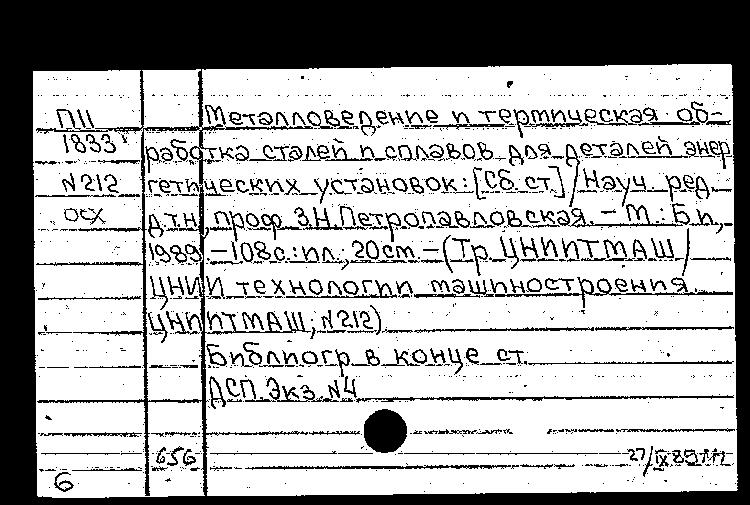 П11 Металловедение и термическая об-
1833 работка сталей и сплавов для деталей энер
N212 гетических установок: [Сб. ст.] / Науч. ред.
осх д.т.н., проф. З.Н. Петропавловская. – М.: Б.и.,
1989. – 108с.: ил.; 20см – (Тр. ЦНИИТМАШ /
ЦНИИ технологии машиностроения
ЦНИИТМАШ; N212)
Библиогр. в конце ст.
ДСП. Экз. N4
656 27/IX 89
6